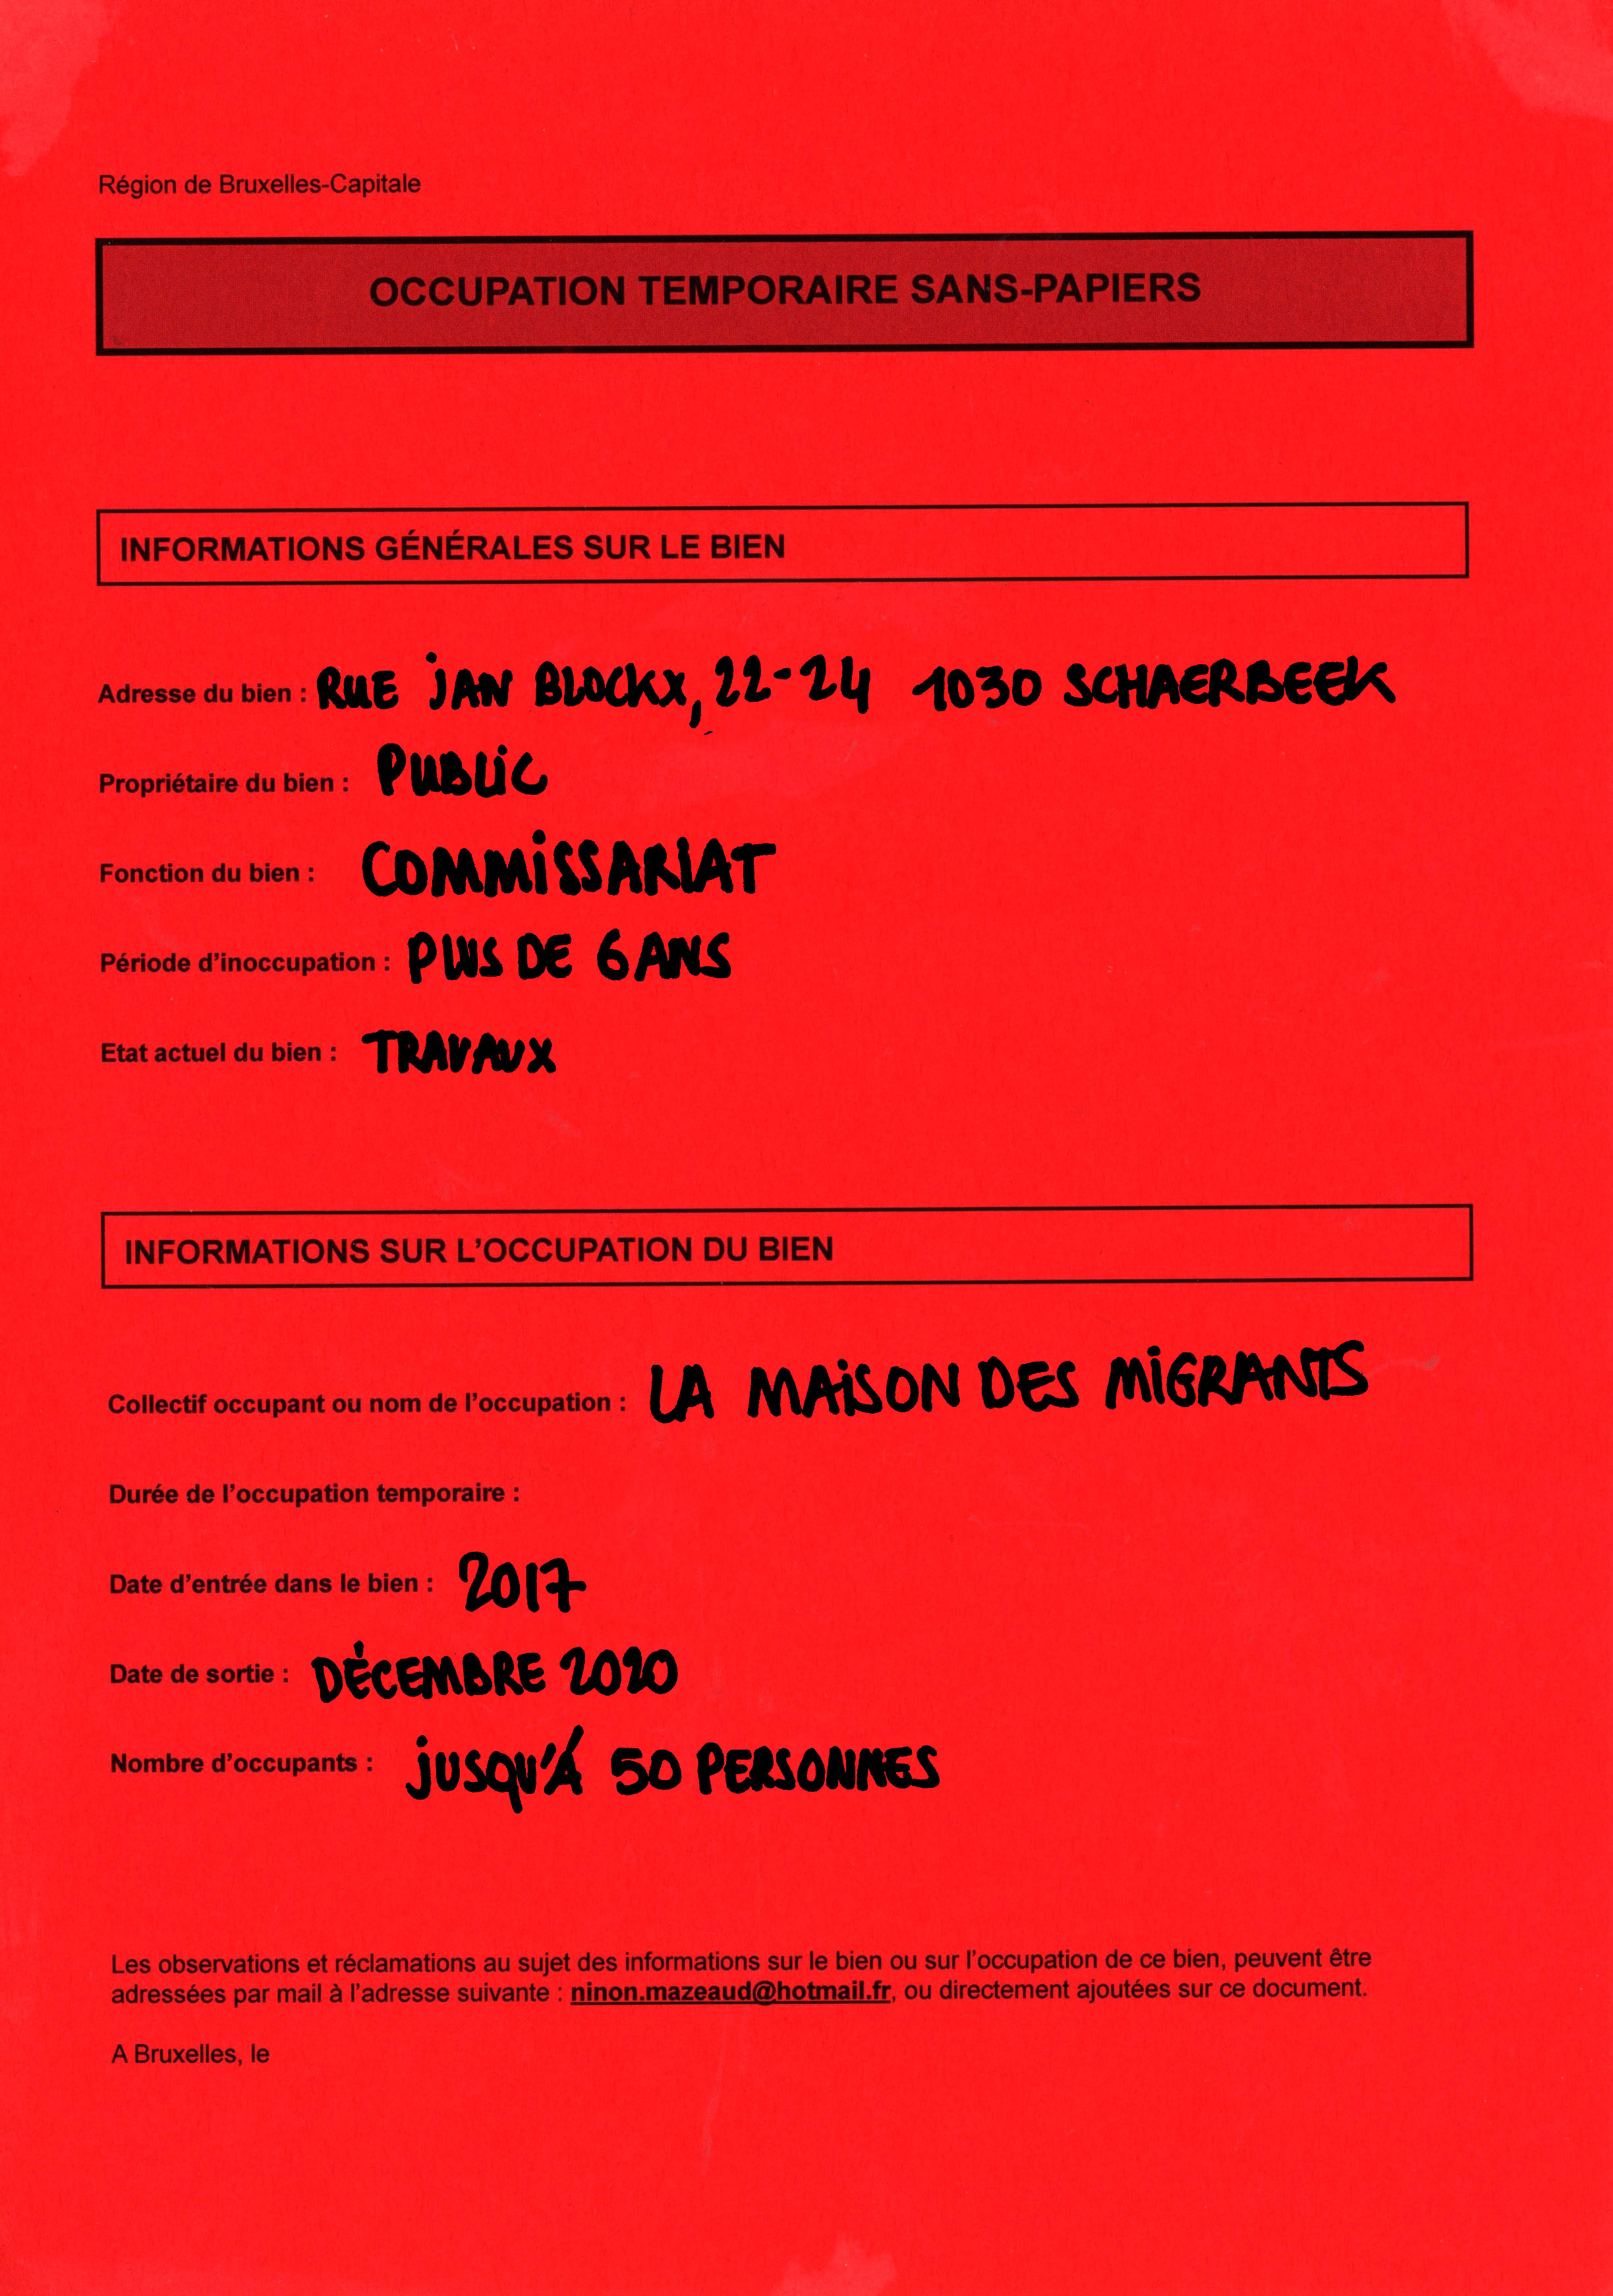 Région de Bruxelles-Capitale
OCCUPATION TEMPORAIRE SANS-PAPIERS
INFORMATIONS GÉNÉRALES SUR LE BIEN
Adresse du bien : RUE JAN BLOCKX, 22-24 1030 SCHAERBEEK
Propriétaire du bien : PUBLIC
Fonction du bien : COMMISSARIAT
Période d'inoccupation : PLUS DE 6 ANS
Etat actuel du bien : TRAVAUX
INFORMATIONS SUR L'OCCUPATION DU BIEN
Collectif occupant ou nom de l'occupation : LA MAISON DES MIGRANTS
Durée de l'occupation temporaire :
Date d'entrée dans le bien : 2017
Date de sortie : DÉCEMBRE 2020
Nombre d'occupants : JUSQU'Á 50 PERSONNES
Les observations et réclamations au sujet des informations sur le bien ou sur l'occupation de ce bien, peuvent être
adressées par mail à l'adresse suivante : ninon.mazeaud@hotmail.fr, ou directement ajoutées sur ce document.
A Bruxelles, le